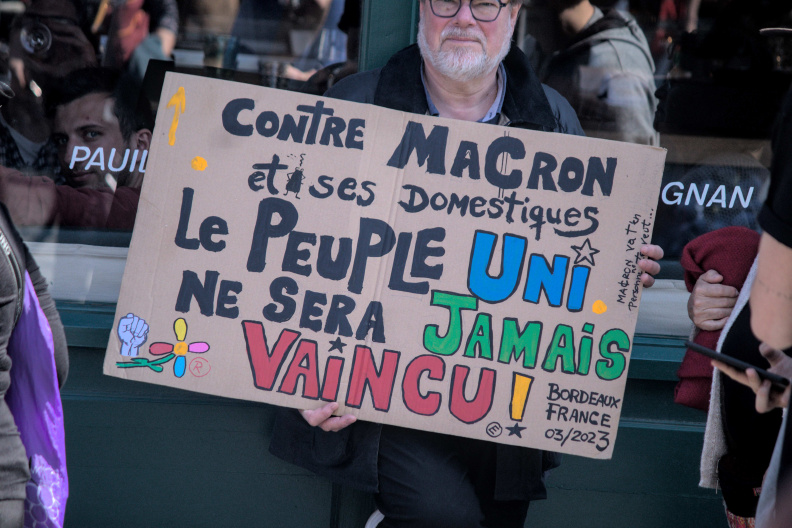 PAUIL
GNAN
CONTRE MACRON
et ses DOMESTIQUES
Le PEUPLE UNI
NE SERA JAMAIS
VAINCU !
MACRON VA T'EN
BORDEAUX
FRANCE
03/2023
R
E